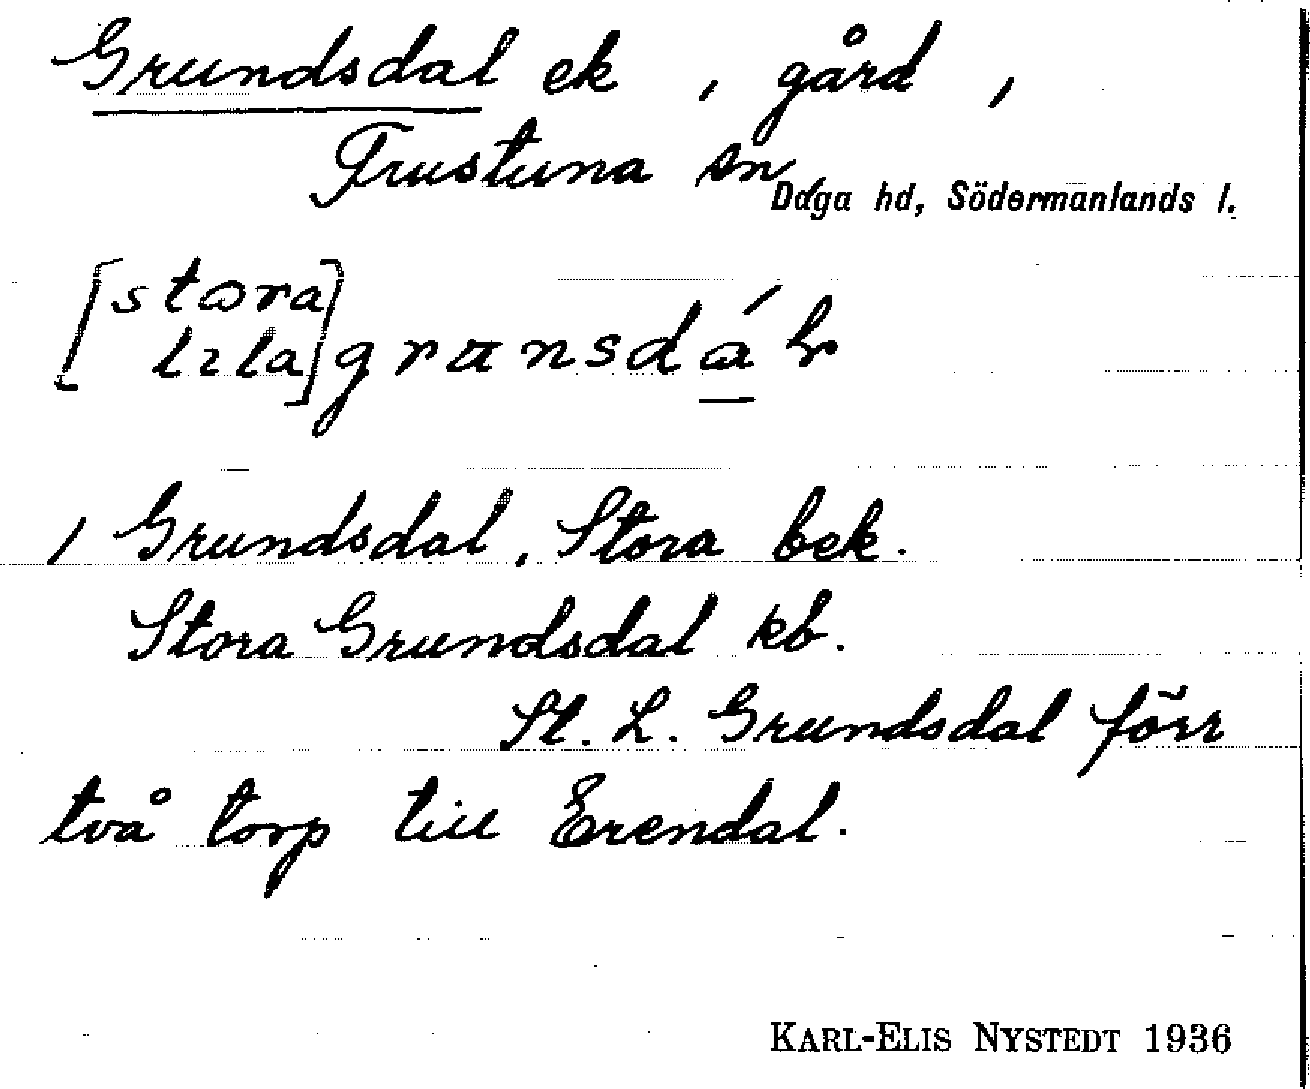 Grundsdal ek , gård ,
Frustuna sn
Daga hd, Södermanlands l.
[stora
lıla] gransdá
/ Grundsdal, Stora bek.
Stora Grundsdal kb.
St. L. Grundsdal förr
två torp till Erendal.
KARL-ELIS NYSTEDT 1936